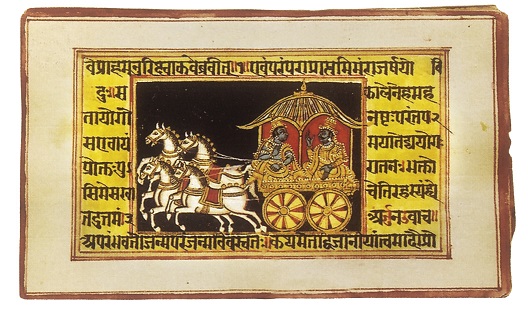 वेप्राहमनुरिक्ष्वाकवेब्रवीत् १ एवंपरंपराप्राप्तमिमंराजर्षयो वि
दुः स कालेनेहमह
तायोगो नष्टः परंतप २
सएवायं मयातेद्ययोगः
प्रोक्तः पु रातनः भक्तो
सिमेसखा चेतिरहस्यंह्ये
तदुत्तमं ३ अर्जुनउवाच
अपरंभवतोजन्मपरंजन्मविवस्वतः कथमेतद्विजानीयांत्वमादौप्रो